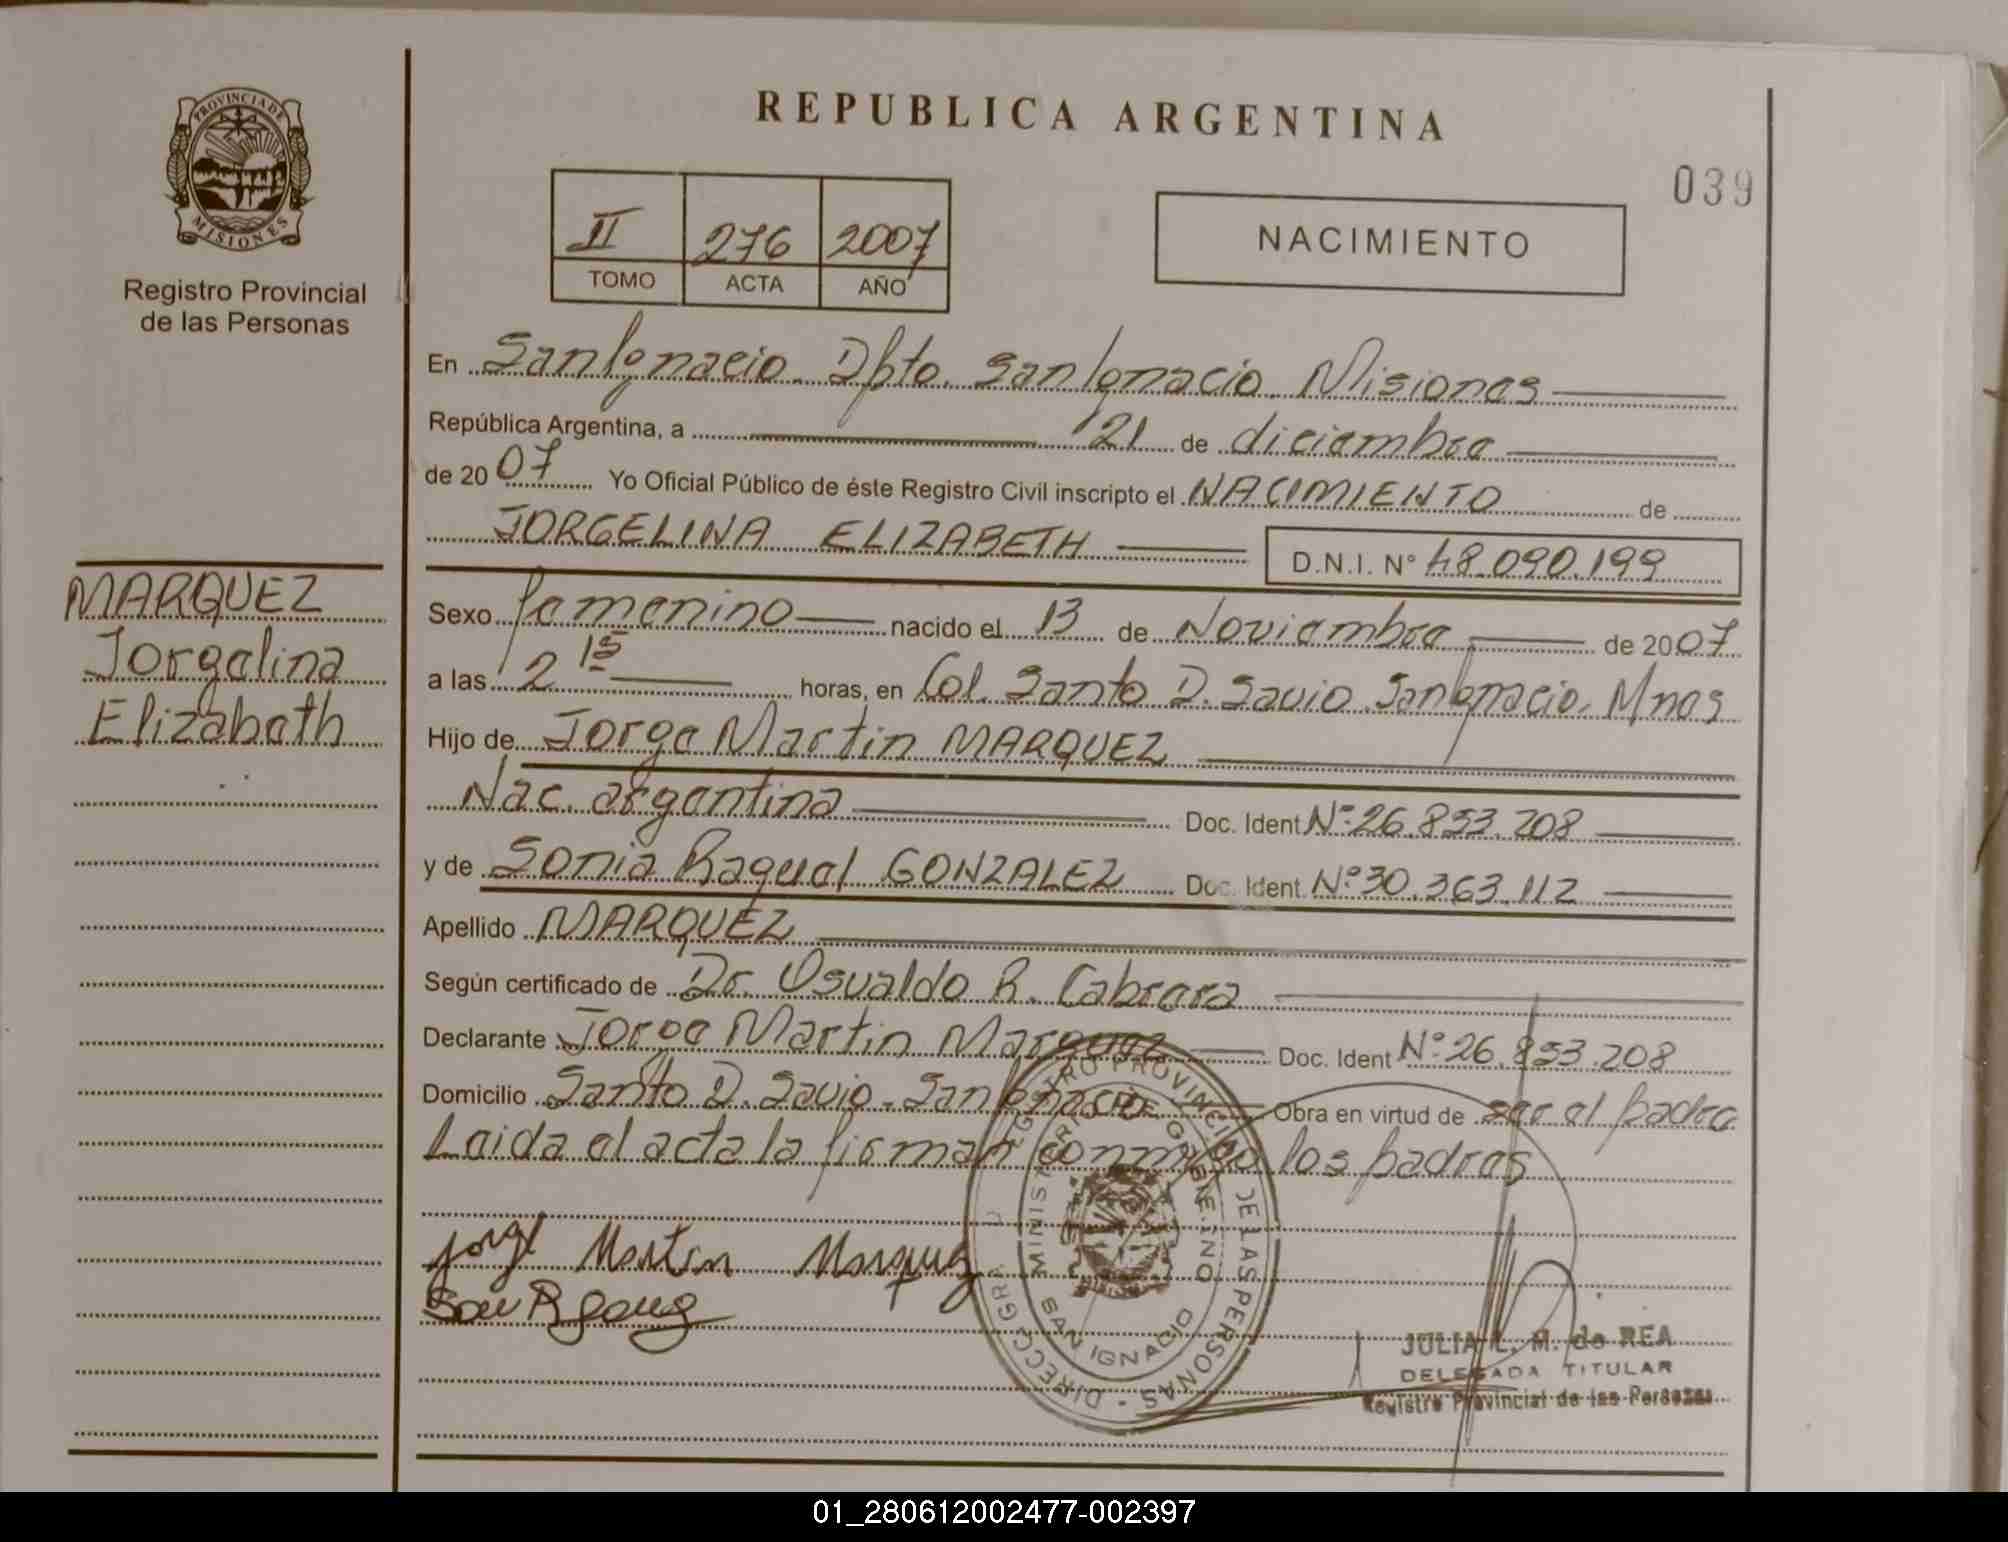 PROVINCIA DE
MISIONES
Registro Provincial
de las Personas
MARQUEZ
Jorgelina
Elizabeth
REPUBLICA ARGENTINA
039
II 276 2007
TOMO ACTA AÑO
NACIMIENTO
En San Ignacio. Dpto. San Ignacio. Misiones
República Argentina, a 21 de diciembre
de 20 07 Yo Oficial Público de éste Registro Civil inscripto el NACIMIENTO de
JORGELINA ELIZABETH D.N.I. N° 48.090.199
Sexo femenino nacido el 13 de Noviembre de 2007
a las 2 15 horas, en Col. Santo D. Savio. San Ignacio. Mnes
Hijo de Jorge Martin MARQUEZ
Nac. argentina Doc. Ident N°: 26.853.208
y de Sonia Raquel GONZALEZ Doc. Ident. N°: 30.363.112
Apellido MARQUEZ
Según certificado de Dr. Osvaldo R. Cabrera
Declarante Jorge Martin Marquez Doc. Ident N°: 26.853.208
Domicilio Santo D. Savio - San Ignacio Obra en virtud de ser el padre
Leida el acta la firman conmigo los padres
Jorge Martin Marquez
REGISTRO PROVINCIAL DE LAS PERSONAS - DIRECC. GRAL
MINISTERIO DE GOBIERNO
SAN IGNACIO
JULIA L. M. de REA
DELEGADA TITULAR
Registro Provincial de las Personas
01_280612002477-002397